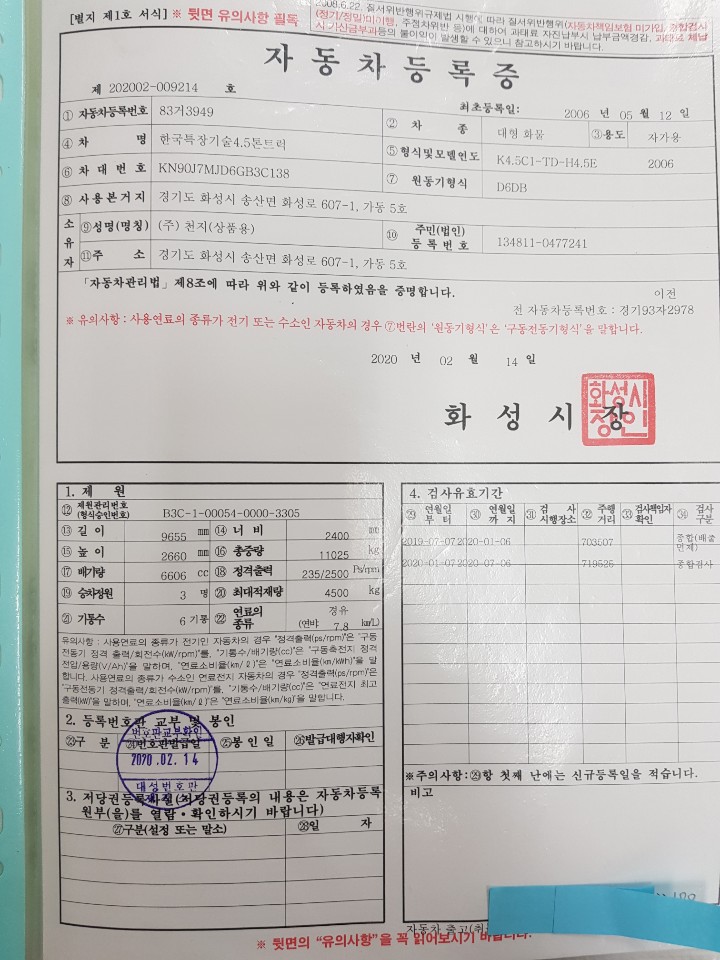 [별지 제1호 서식] ※ 뒷면 유의사항 필독
2008.6.22. 질서위반행위규제법 시행에 따라 질서위반행위(자동차책임보험 미가입, 종합검사
(정기/정밀)미이행, 주정차위반 등)에 대하여 과태료 자진납부시 납부금액경감, 과태료 체납
시 가산금부과등의 불이익이 발생할 수 있으니 참고하시기 바랍니다.
자동차등록증
제 202002-009214 호
최초등록일: 2006 년 05 월 12 일
① 자동차등록번호 83거3949 ② 차 종 대형 화물 ③용도 자가용
④ 차 명 한국특장기술4.5톤트럭 ⑤ 형식및모델연도 K4.5C1-TD-H4.5E 2006
⑥ 차 대 번 호 KN90J7MJD6GB3C138 ⑦ 원동기형식 D6DB
⑧ 사 용 본 거 지 경기도 화성시 송산면 화성로 607-1, 가동 5호
소유자 ⑨성명(명칭) (주) 천지(상품용) ⑩ 주민(법인)등록번호 134811-0477241
⑪주 소 경기도 화성시 송산면 화성로 607-1, 가동 5호
「자동차관리법」 제8조에 따라 위와 같이 등록하였음을 증명합니다.
이전
전 자동차등록번호 : 경기93자2978
※ 유의사항 : 사용연료의 종류가 전기 또는 수소인 자동차의 경우 ⑦번란의 '원동기형식'은 '구동전동기형식'을 말합니다.
2020 년 02 월 14 일
화 성 시 장
화성시
장인
1. 제 원
⑫ 제원관리번호(형식승인번호) B3C-1-00054-0000-3305
⑬ 길 이 9655 mm ⑭ 너 비 2400 mm
⑮ 높 이 2660 mm ⑯ 총중량 11025 kg
⑰ 배기량 6606 cc ⑱ 정격출력 235/2500 Ps/rpm
⑲ 승차정원 3 명 ⑳ 최대적재량 4500 kg
㉑ 기통수 6 기통 ㉒ 연료의 종류 경유 (연비 7.8 km/L)
유의사항 : 사용연료의 종류가 전기인 자동차의 경우 "정격출력(ps/rpm)"은 "구동
전동기 정격 출력/회전수(kW/rpm)"를, "기통수/배기량(cc)"은 "구동축전지 정격
전압/용량(V/Ah)"을 말하며, "연료소비율(km/ℓ)"은 "연료소비율(km/kWh)"을 말
합니다. 사용연료의 종류가 수소인 연료전지 자동차의 경우 "정격출력(ps/rpm)"은
"구동전동기 정격출력/회전수(kW/rpm)"를, "기통수/배기량(cc)"은 "연료전지 최고
출력(kW)"을 말하며, "연료소비율(km/ℓ)"은 "연료소비율(km/kg)"을 말합니다.
2. 등록번호판 교부 및 봉인
㉓구 분 ㉔번호판발급일 ㉕봉 인 일 ㉖발급대행자확인
번호판교부확인
2020.02.14
대성번호판
3. 저당권등록사실(저당권등록의 내용은 자동차등록
원부(을)를 열람·확인하시기 바랍니다)
㉗구분(설정 또는 말소) ㉘일 자
4. 검사유효기간
㉙ 연월일부터 ㉚ 연월일까지 ㉛ 검 사 시행장소 ㉜ 주행거리 ㉝ 검사책임자확인 ㉞ 검사구분
2019-07-07 2020-01-06 703507 종합(배출면제)
2020-01-07 2020-07-06 719525 종합검사
※주의사항:㉙항 첫째 난에는 신규등록일을 적습니다.
비고
자동차 출고(취
※ 뒷면의 "유의사항"을 꼭 읽어보시기 바랍니다.